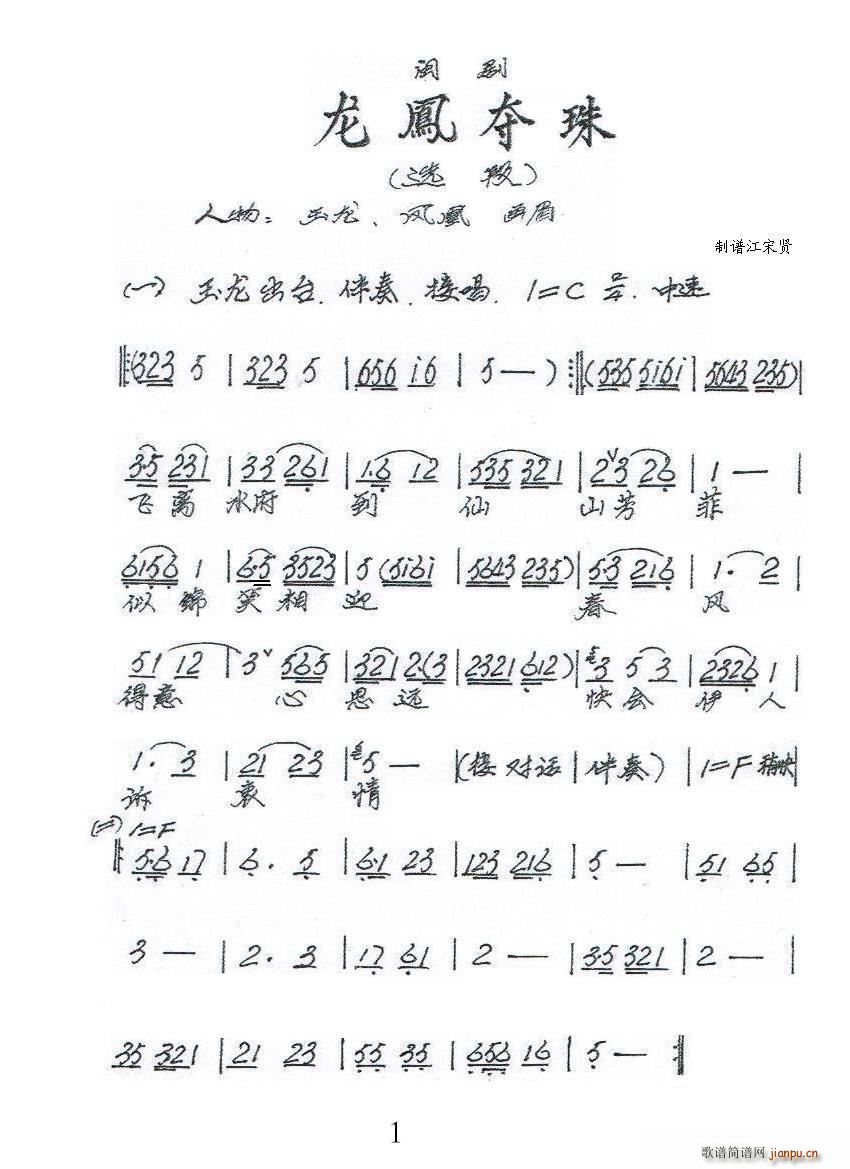 闽剧
龙鳳夺珠
(选段)
人物：玉龙、凤凰 画眉
制谱江宋贤
(一) 玉龙出台.伴奏.接唱. 1=C 2/4.中速
‖:(323 5 | 323 5 | 656 i6 | 5 — ) :‖:(535 5i6i | 5643 235) |
3·5 231 | 33 261 | 1·6 12 | 535 321 | 2ˇ3 26 | 1 — |
飞离水府到仙山芳菲
6156 1 | 6·5 3523 | 5 (5i6i | 5643 235) | 5·3 216 | 1· 2 |
似锦笑相迎 春风
51 12 | 3ˇ 565 | 321 2·(3 | 2321 612) | 3 5 3 | 2326 1 |
得意心思远 快会伊人
1· 3 | 21 23 | 5 — | (接对话 | 伴奏) | 1=F 稍快 |
诉衷情
(二) 1=F
‖: 5·6 17 | 6· 5 | 6·1 23 | 123 216 | 5 — | 51 65 |
3 — | 2· 3 | 17 61 | 2 — | 3·5 321 | 2 — |
35 321 | 21 23 | 55 35 | 656 16 | 5 — :‖
1
歌谱简谱网 jianpu.cn